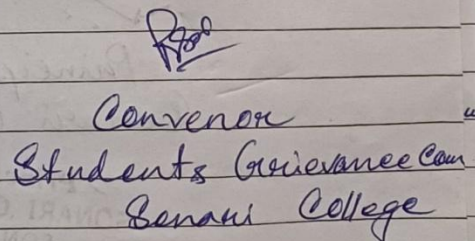 Convenor
Students Grievance Com
Senari College